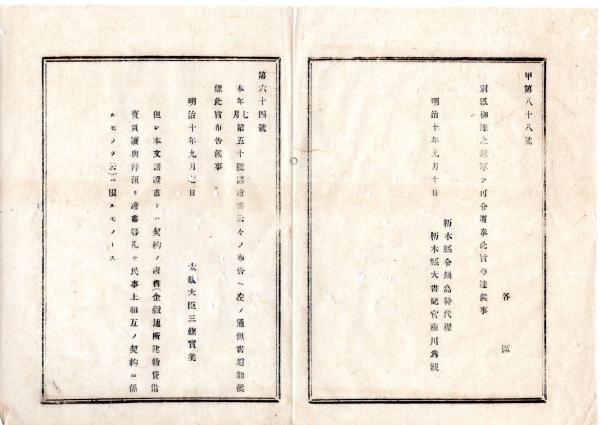 甲第八十八號
各區
別紙御達之趣堅ク可令遵奉此旨布達候事
明治十年九月十日
栃木縣令鍋島幹代理
栃木縣大書記官藤川爲親
第六十四號
本年七月第五十號諸證書云々ノ布告ヘ左ノ通但書追加候
條此旨布告候事
明治十年九月七日
太政大臣三條實美
但シ本文諸證書トハ契約ノ證書(金穀地所建物貸借
賣買讓與 ヲ證書等凡テ民事上相互ノ契約ニ係
ルモノヲ云)ニ限ルモノトス